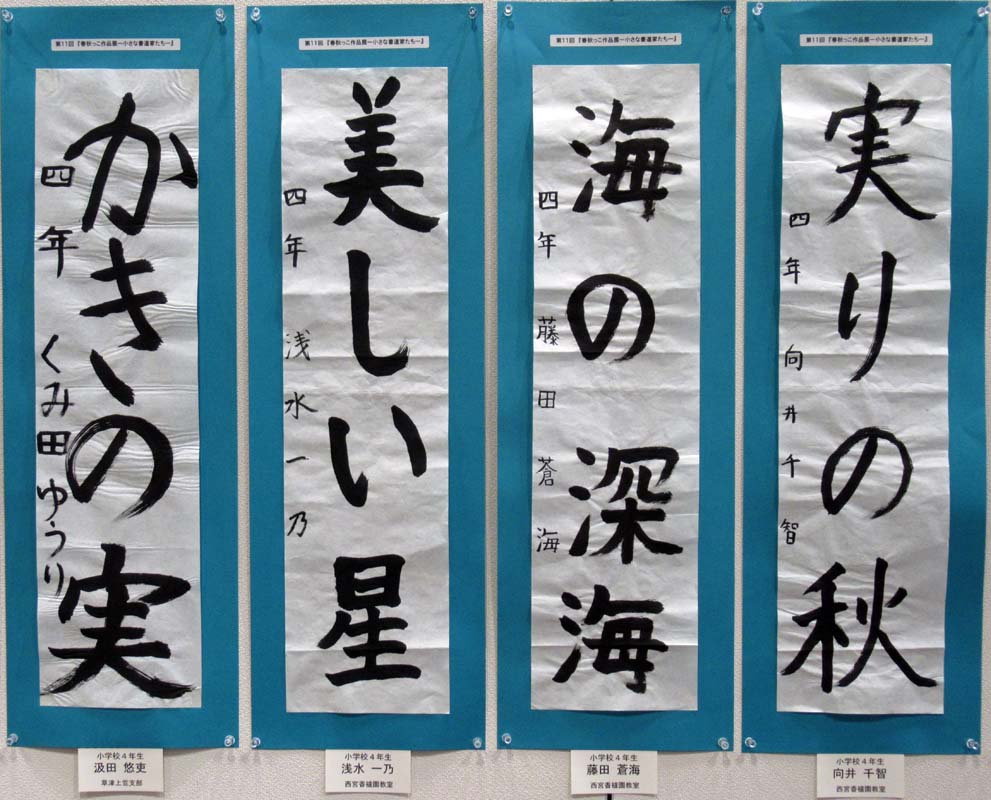 第11回『春秋っこ作品展ー小さな書道家たちー』
かきの実
四年 くみ田ゆうり
小学校4年生
汲田 悠吏
草津上笠支部
第11回『春秋っこ作品展ー小さな書道家たちー』
美しい星
四年 浅水一乃
小学校4年生
浅水 一乃
西宮香櫨園教室
第11回『春秋っこ作品展ー小さな書道家たちー』
海の深海
四年 藤田蒼海
小学校4年生
藤田 蒼海
西宮香櫨園教室
第11回『春秋っこ作品展ー小さな書道家たちー』
実りの秋
四年 向井千智
小学校4年生
向井 千智
西宮香櫨園教室